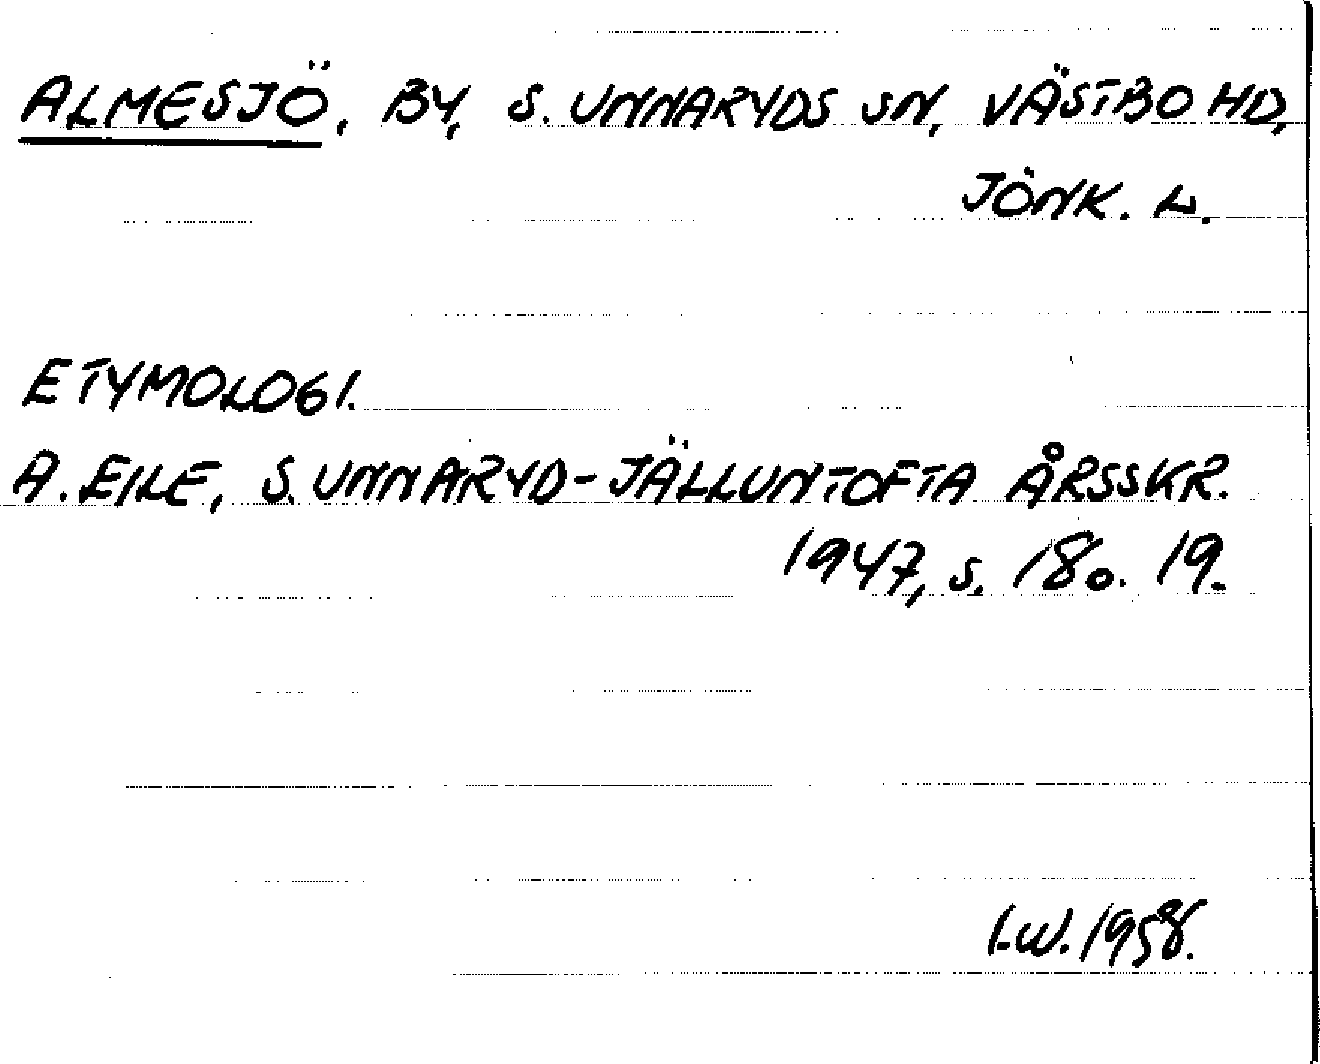 ALMESJÖ, BY, S. UNNARYDS SN, VÄSTBO HD,
JÖNK. L.
ETYMOLOGI.
A. EILE, S. UNNARYD-JÄLLUNTOFTA ÅRSSKR.
1947, s. 18 o. 19.
I.W. 1958.